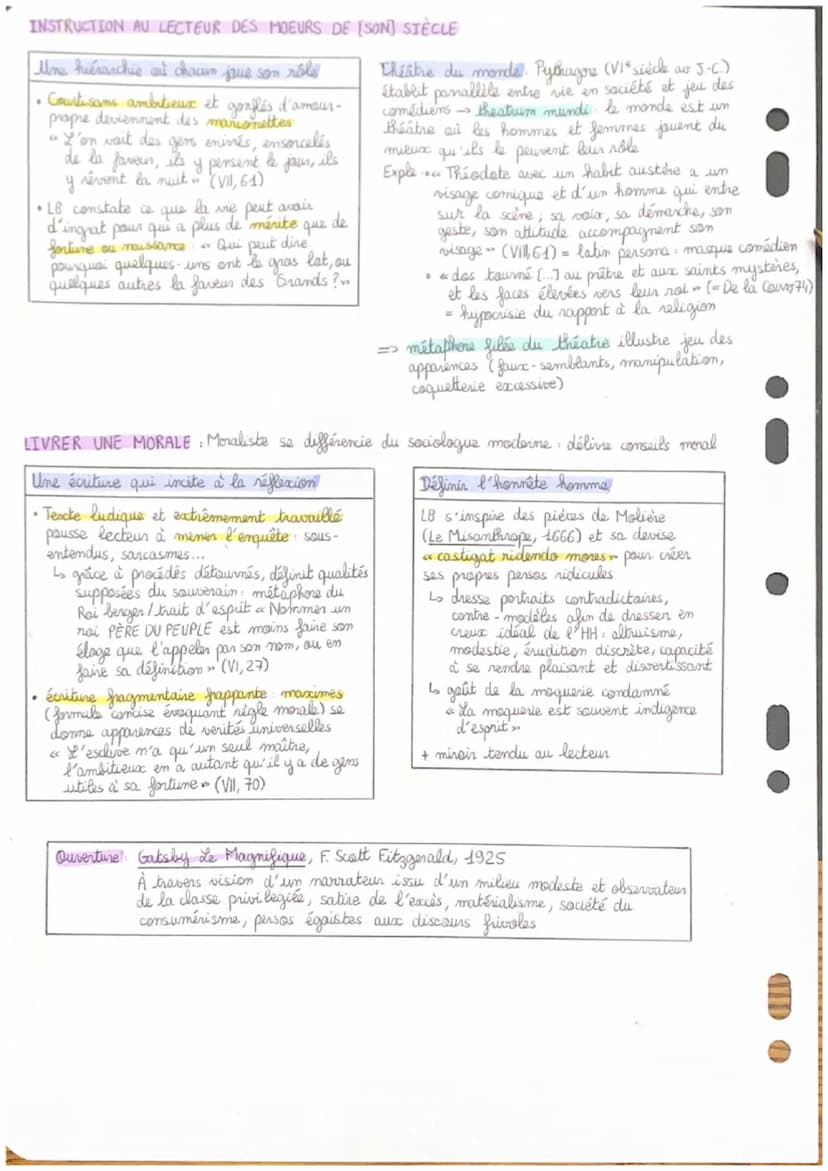 INSTRUCTION AU LECTEUR DES MOEURS DE [SON] SIÈCLE
Une hiérarchie où chacun joue son rôle
• Courtisans ambitieux et gonflés d'amour-
propre deviennent des marionettes
« L'on voit des gens enivrés, ensorcelés
de la faveur, ils y pensent le jour, ils
y rêvent la nuit » (VII, 61)
• LB constate ce que la vie peut avoir
d'ingrat pour qui a plus de mérite que de
fortune ou naissance : « Qui peut dire
pourquoi quelques-uns ont le gros lot, ou
quelques autres la faveur des Grands ? »
Théâtre du monde. Pythagore (VIe siècle av J-C.)
établit parallèle entre vie en société et jeu des
comédiens → theatrum mundi : le monde est un
théâtre où les hommes et femmes jouent du
mieux qu'ils le peuvent leur rôle
Exple • « Théodote avec un habit austère a un
visage comique et d'un homme qui entre
sur la scène ; sa voix, sa démarche, son
geste, son attitude accompagnent son
visage » (VIII, 61) = latin persona : masque comédien
• « dos tourné [...] au prêtre et aux saints mystères,
et les faces élevées vers leur roi » (= De la Cour, 74)
= hypocrisie du rapport à la religion
=> métaphore filée du théâtre illustre jeu des
apparences (faux-semblants, manipulation,
coquetterie excessive)
LIVRER UNE MORALE : Moraliste se différencie du sociologue moderne : délivre conseils moral
Une écriture qui incite à la réflexion
• Texte ludique et extrêmement travaillé
pousse lecteur à mener l'enquête : sous-
entendus, sarcasmes...
↳ grâce à procédés détournés, définit qualités
supposées du souverain : métaphore du
Roi berger / trait d'esprit « Nommer un
roi PÈRE DU PEUPLE est moins faire son
éloge que l'appeler par son nom, ou en
faire sa définition » (VI, 27)
• écriture fragmentaire frappante : maximes
(formule concise évoquant règle morale) se
donne apparences de vérités universelles
« L'esclave n'a qu'un seul maître,
l'ambitieux en a autant qu'il y a de gens
utiles à sa fortune » (VII, 70)
Définir l'honnête homme
LB s'inspire des pièces de Molière
(Le Misanthrope, 1666) et sa devise
« castigat ridendo mores » pour créer
ses propres persos ridicules
↳ dresse portraits contradictoires,
contre-modèles afin de dresser en
creux idéal de l'HH : altruisme,
modestie, érudition discrète, capacité
à se rendre plaisant et divertissant
↳ goût de la moquerie condamné
« La moquerie est souvent indigence
d'esprit »
+ miroir tendu au lecteur
Ouverture : Gatsby Le Magnifique, F. Scott Fitzgerald, 1925
À travers vision d'un narrateur issu d'un milieu modeste et observateur
de la classe privilegiée, satire de l'excès, matérialisme, société du
consumérisme, persos égoïstes aux discours frivoles